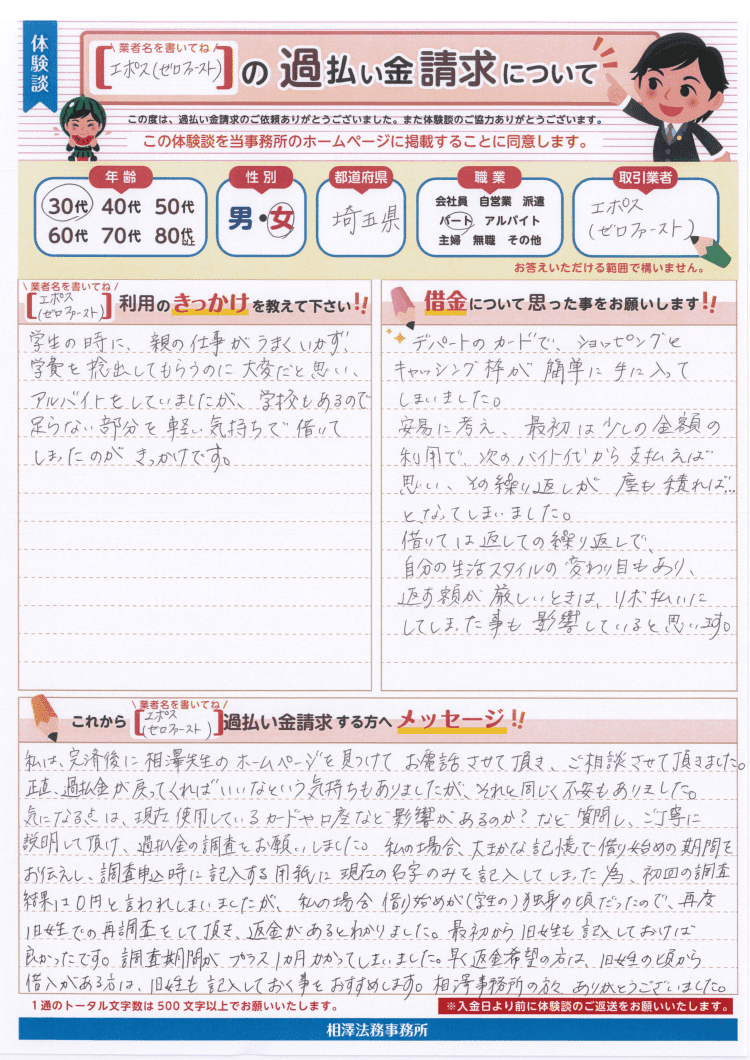 体験談
\業者名を書いてね/
[エポス(ゼロファースト)]の過払い金請求について
この度は、過払い金請求のご依頼ありがとうございました。また体験談のご協力ありがとうございます。
この体験談を当事務所のホームページに掲載することに同意します。
年齢
30代 40代 50代
60代 70代 80代以上
性別
男・女
都道府県
埼玉県
職業
会社員 自営業 派遣
パート アルバイト
主婦 無職 その他
取引業者
エポス
(ゼロファースト)
お答えいただける範囲で構いません。
\業者名を書いてね/
[エポス(ゼロファースト)]利用のきっかけを教えて下さい!!
学生の時に、親の仕事がうまくいかず、
学費を捻出してもらうのに大変だと思い、
アルバイトをしていましたが、学校もあるので
足らない部分を軽い気持ちで借りて
しまったのがきっかけです。
借金について思った事をお願いします!!
デパートのカードで、ショッピングと
キャッシング枠が簡単に手に入って
しまいました。
安易に考え、最初は少しの金額の
利用で、次のバイト代から支払えばと
思い、その繰り返しが塵も積れば…
となってしまいました。
借りては返しての繰り返しで、
自分の生活スタイルの変わり目もあり、
返す額が厳しいときは、リボ払いに
してしまった事も影響していると思います。
\業者名を書いてね/
これから[エポス(ゼロファースト)]過払い金請求する方へメッセージ!!
私は、完済後に相澤先生のホームページを見つけてお電話させて頂き、ご相談させて頂きました。
正直、過払金が戻ってくればいいなという気持ちもありましたが、それと同じく不安もありました。
気になる点は、現在使用しているカードや口座など影響があるのか?など質問し、ご丁寧に
説明して頂け、過払金の調査をお願いしました。私の場合、大まかな記憶で借り始めの期間を
お伝えし、調査申込時に記入する用紙に現在の名字のみを記入してしまった為、初回の調査
結果は0円と言われしまいましたが、私の場合借り始めが(学生の)独身の頃だったので、再度
旧姓での再調査をして頂き、返金があるとわかりました。最初から旧姓も記入しておけば
良かったです。調査期間がプラス1ヵ月かかってしまいました。早く返金希望の方は、旧姓の頃から
借入がある方は、旧姓も記入しておく事をおすすめします。相澤事務所の方々ありがとうございました。
1通のトータル文字数は500文字以上でお願いいたします。
※入金日より前に体験談のご返送をお願いいたします。
相澤法務事務所